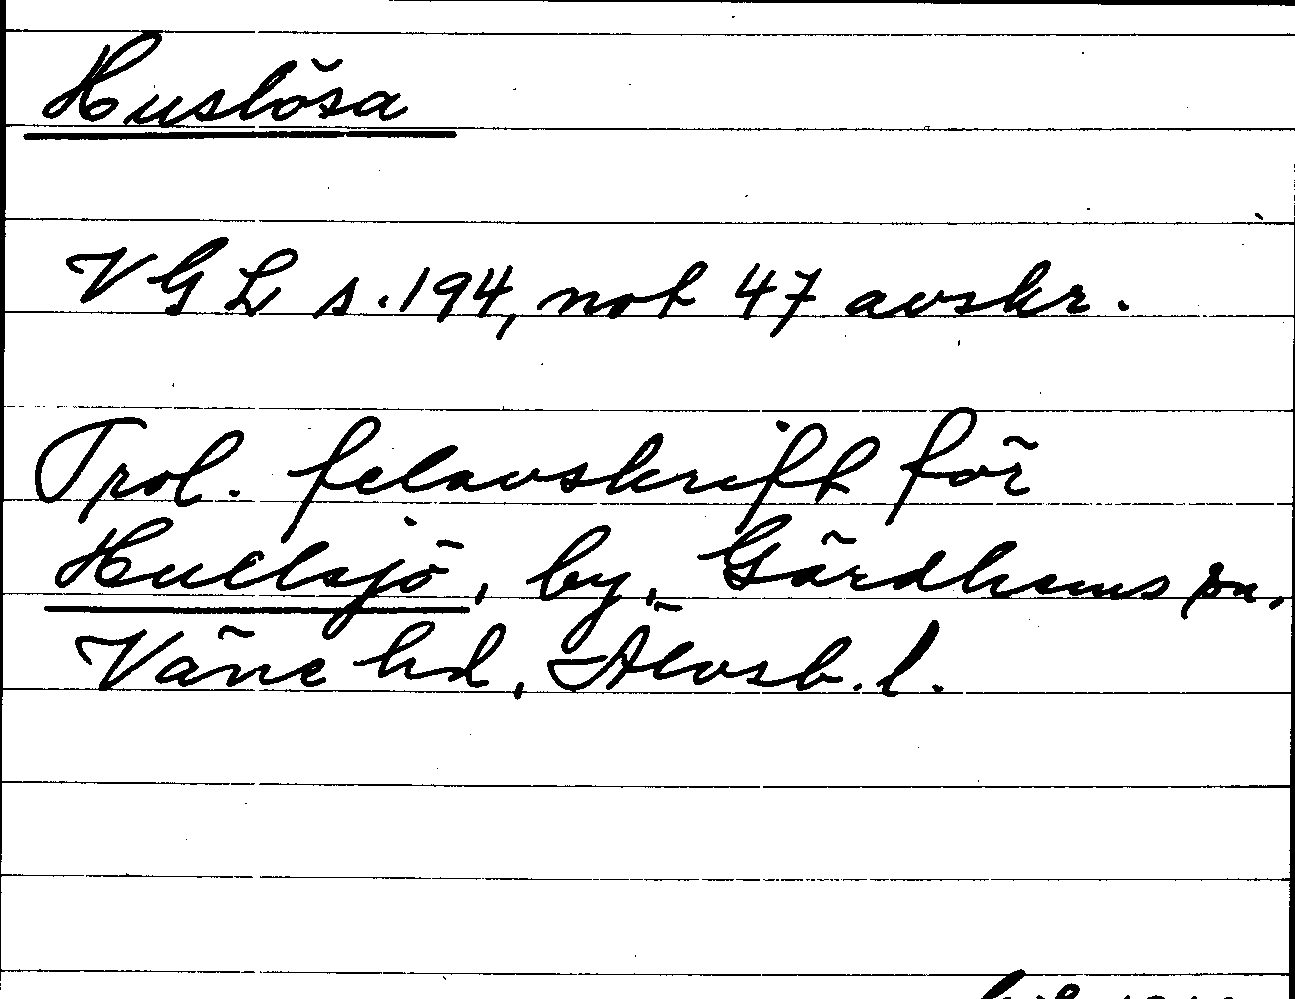 Huslösa
VGL s. 194, not 47 avskr.
Trol. felavskrift för
Hullsjö, by, Gärdhems sn,
Väne hd, Älvsb. l.